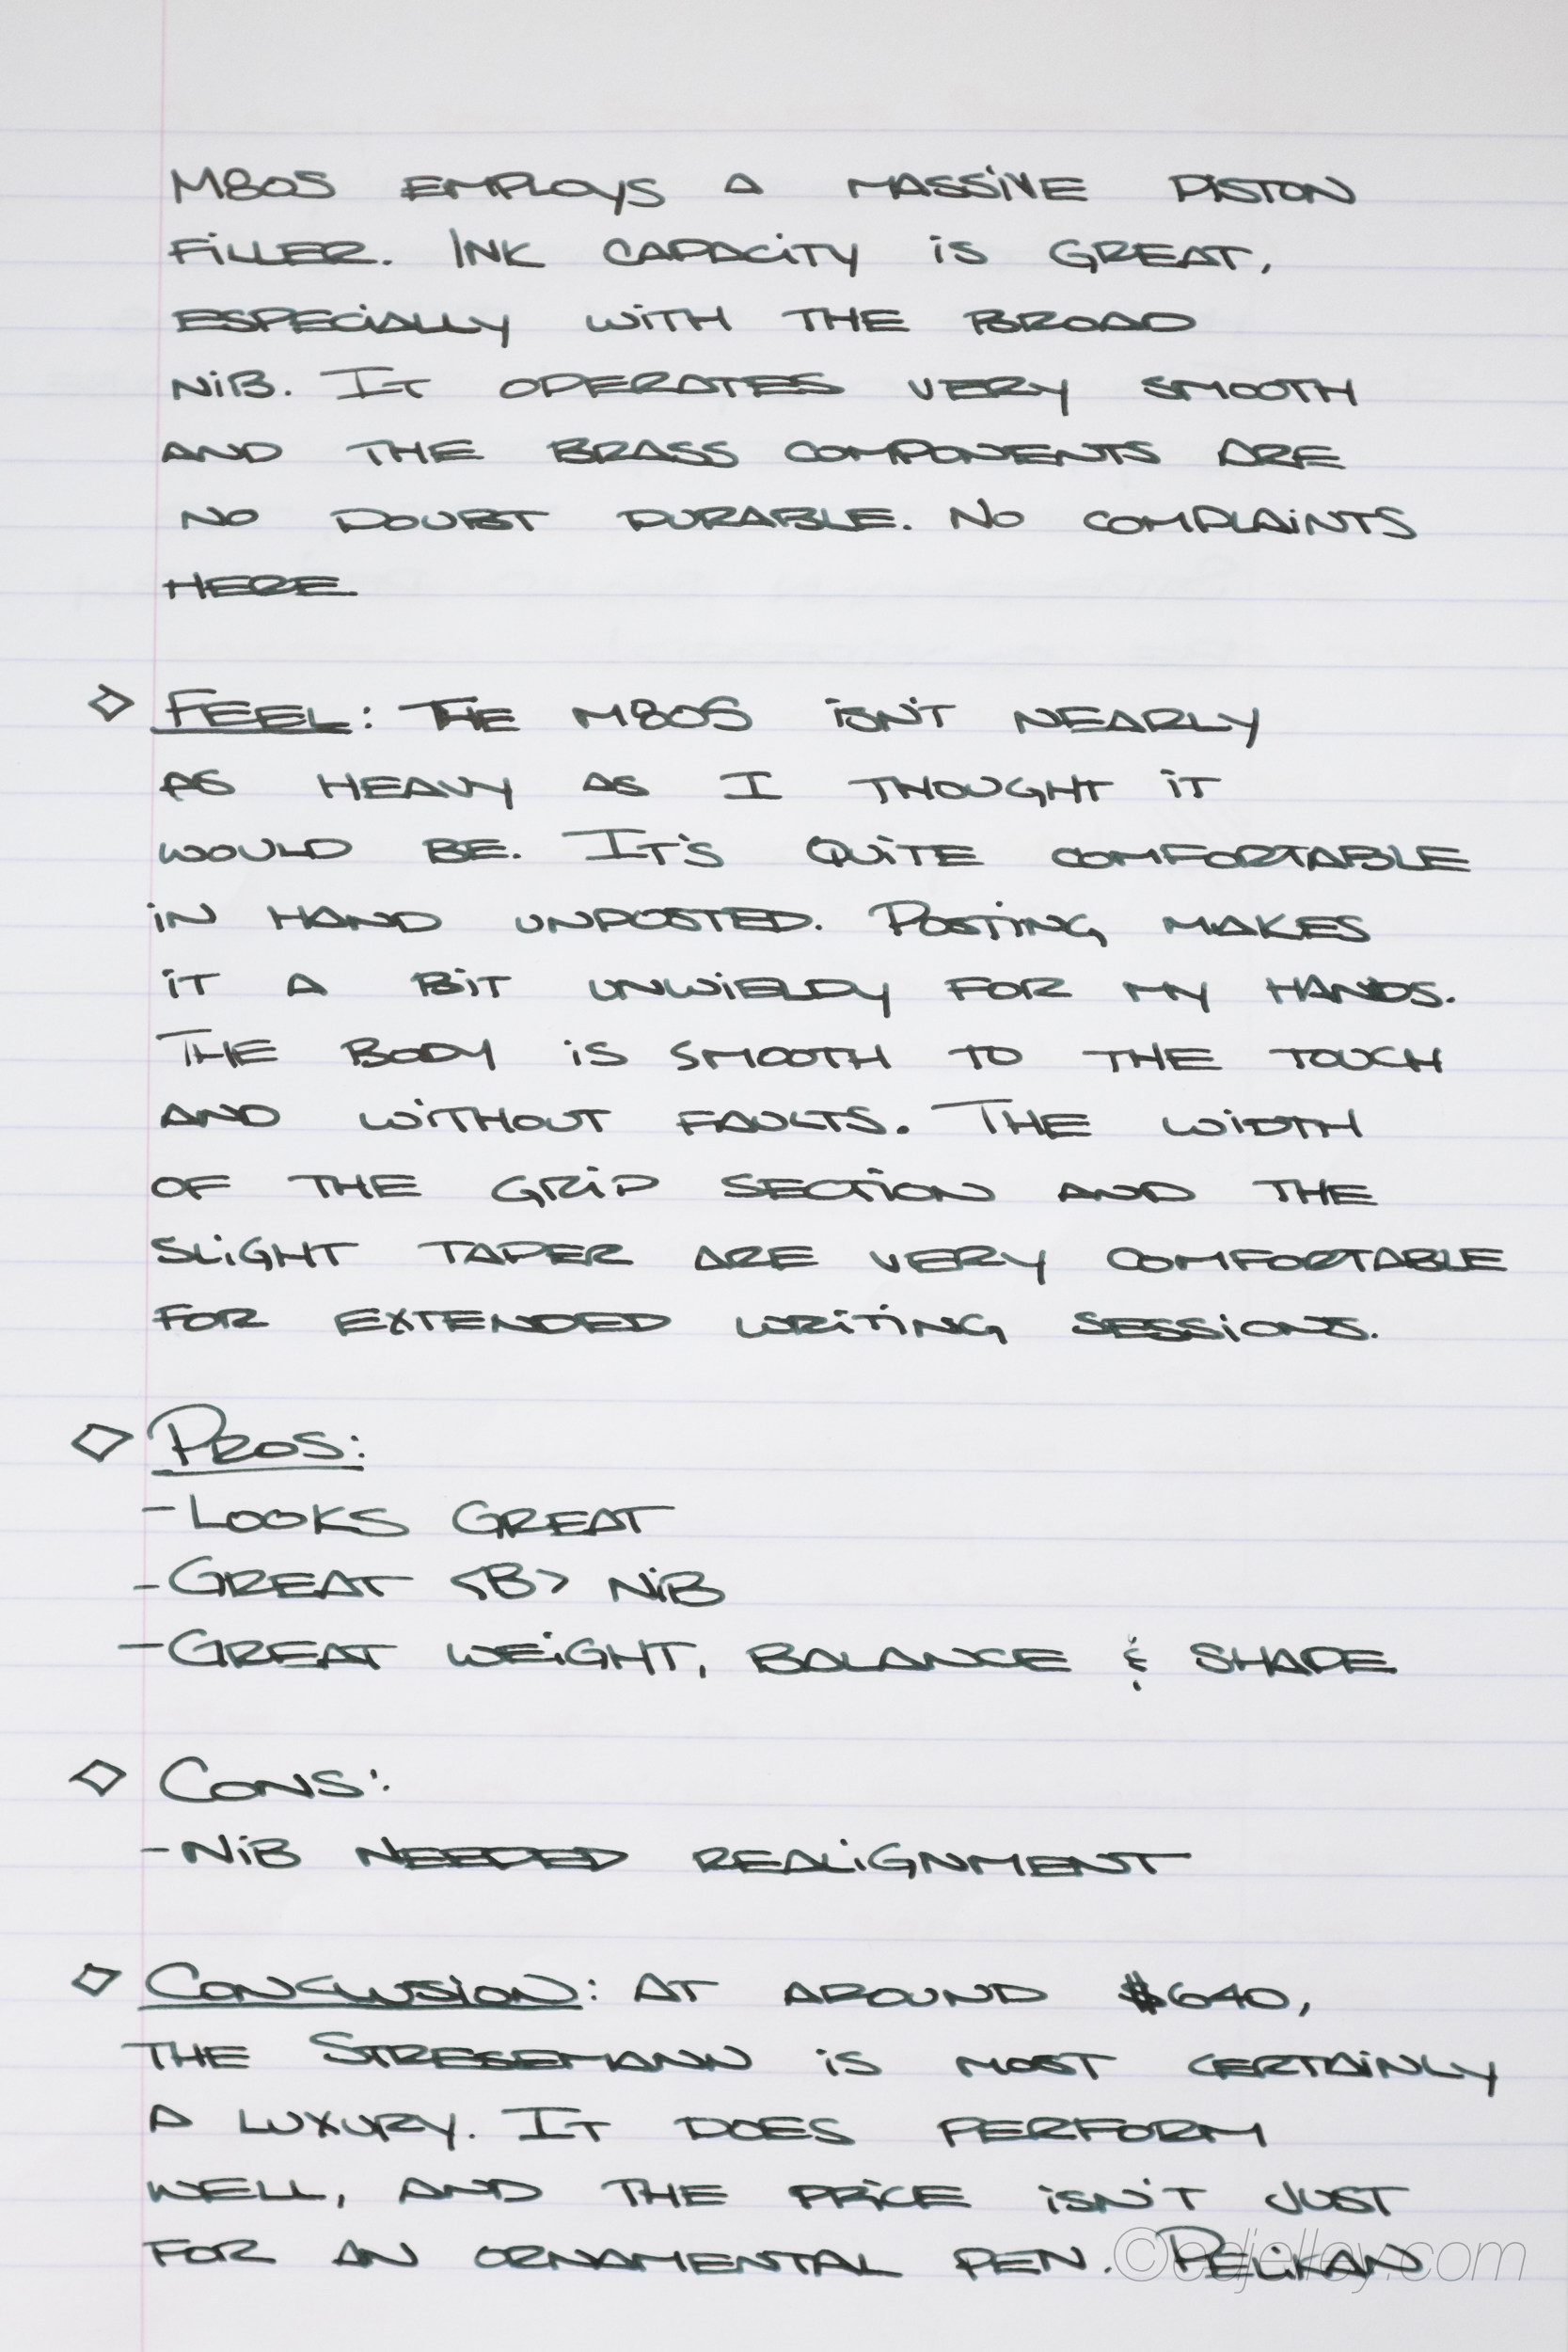 M805 EMPLOYS A MASSIVE PISTON
FILLER. INK CAPACITY IS GREAT,
ESPECIALLY WITH THE BROAD
NIB. IT OPERATES VERY SMOOTH
AND THE BRASS COMPONENTS ARE
NO DOUBT DURABLE. NO COMPLAINTS
HERE.
◇ FEEL: THE M805 ISN'T NEARLY
AS HEAVY AS I THOUGHT IT
WOULD BE. IT'S QUITE COMFORTABLE
IN HAND UNPOSTED. POSTING MAKES
IT A BIT UNWIELDY FOR MY HANDS.
THE BODY IS SMOOTH TO THE TOUCH
AND WITHOUT FAULTS. THE WIDTH
OF THE GRIP SECTION AND THE
SLIGHT TAPER ARE VERY COMFORTABLE
FOR EXTENDED WRITING SESSIONS.
◇ PROS:
- LOOKS GREAT
- GREAT <B> NIB
- GREAT WEIGHT, BALANCE & SHAPE
◇ CONS:
- NIB NEEDED REALIGNMENT
◇ CONCLUSION: AT AROUND $640,
THE STRESEMANN IS MOST CERTAINLY
A LUXURY. IT DOES PERFORM
WELL, AND THE PRICE ISN'T JUST
FOR AN ORNAMENTAL PEN. PELIKAN
©edjelley.com